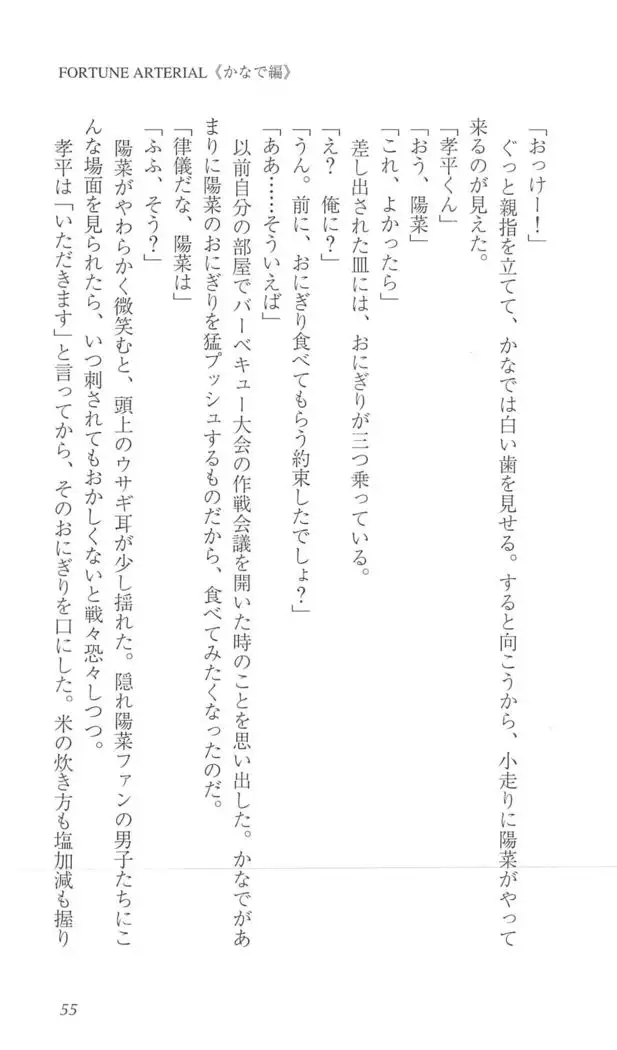 FORTUNE ARTERIAL《かなで編》
「おっけー！」
　ぐっと親指を立てて、かなでは白い歯を見せる。すると向こうから、小走りに陽菜がやって
来るのが見えた。
「孝平くん」
「おう、陽菜」
「これ、よかったら」
　差し出された皿には、おにぎりが三つ乗っている。
「え？　俺に？」
「うん。前に、おにぎり食べてもらう約束したでしょ？」
「ああ……そういえば」
　以前自分の部屋でバーベキュー大会の作戦会議を開いた時のことを思い出した。かなでがあ
まりに陽菜のおにぎりを猛プッシュするものだから、食べてみたくなったのだ。
「律儀だな、陽菜は」
「ふふ、そう？」
　陽菜がやわらかく微笑むと、頭上のウサギ耳が少し揺れた。隠れ陽菜ファンの男子たちにこ
んな場面を見られたら、いつ刺されてもおかしくないと戦々恐々しつつ。
　孝平は「いただきます」と言ってから、そのおにぎりを口にした。米の炊き方も塩加減も握り
55